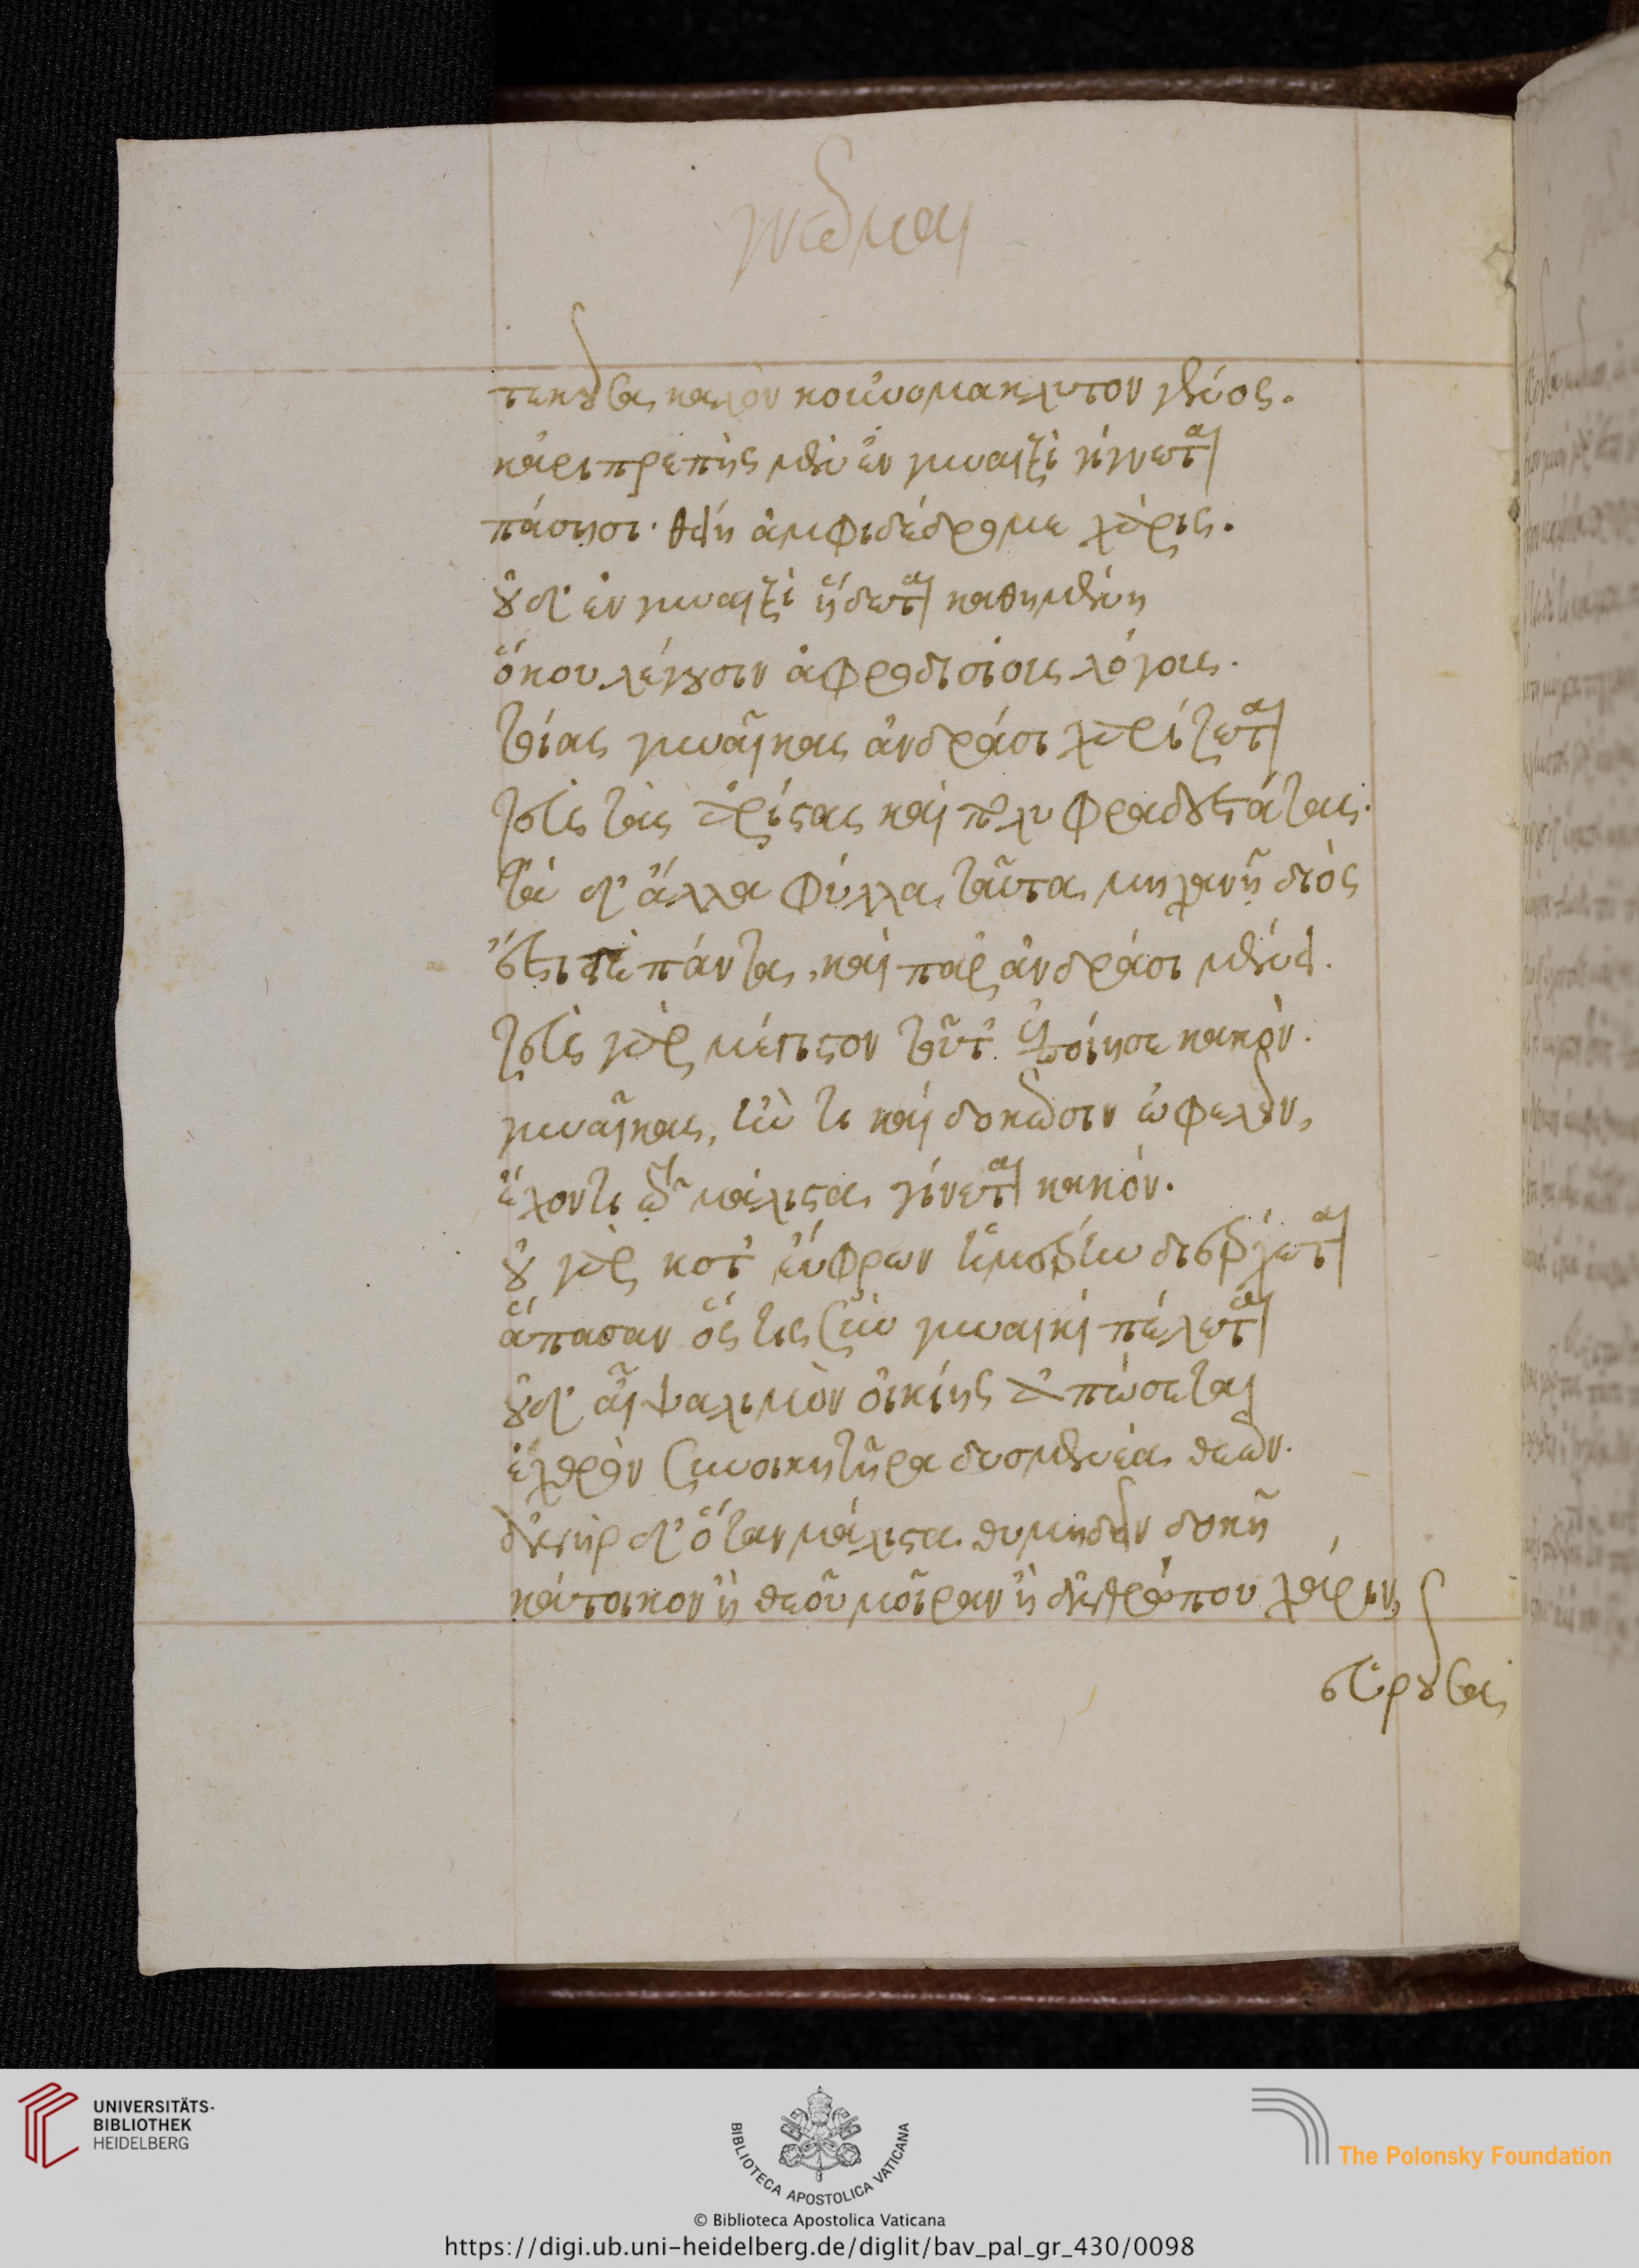 γνῶμαι
τεκοῦσα καλὸν κοὐνομακλυτον γένος.
κἀριπρεπὴς μὲν ἐν γυναιξὶ γίγνεται
πάσησι. θείη ἀμφιδέδρομε χάρις.
οὐδ' ἐν γυναιξὶ ἥδεται καθημένη
ὅκου λέγουσιν ἀφροδισίοις λόγοις.
τοίας γυναῖκας ἀνδράσι χαρίζεται
ζεὺς τὰς ἀρίστας καὶ πολυφραδεστάτας.
τὰ δ' ἄλλα φύλλα ταῦτα μηχανῆ διὸς
ἔστι τὲ πάντα, καὶ παρ ἀνδράσι μένει.
ζεὺς γὰρ μέγιστον τοῦτ' ἐποίησε κακὸν.
γυναῖκας, ἢν τι καὶ δοκῶσιν ὠφελεῖν,
ἔχοντι τῶ μάλιστα γίνεται κακόν.
οὐ γὰρ κοτ' εὔφρων ἡμέρην διέρχεται
ἅπασαν ὅς τις σὺν γυναικὶ πέλεται
οὐδ' αἶψα λιμὸν οἰκίης ἀπώσεται
ἐχθρὸν συνοικητῆρα δυσμενέα θεῶν.
ἀνὴρ δ' ὅταν μάλιστα θυμηδεῖν δοκῆ
κάτοικον ἢ θεοῦ μοῖραν ἢ ἀνθρώπου χάριν,
εὑροῦσα
UNIVERSITÄTS-
BIBLIOTHEK
HEIDELBERG
BIBLIOTECA APOSTOLICA VATICANA
The Polonsky Foundation
© Biblioteca Apostolica Vaticana
https://digi.ub.uni-heidelberg.de/diglit/bav_pal_gr_430/0098